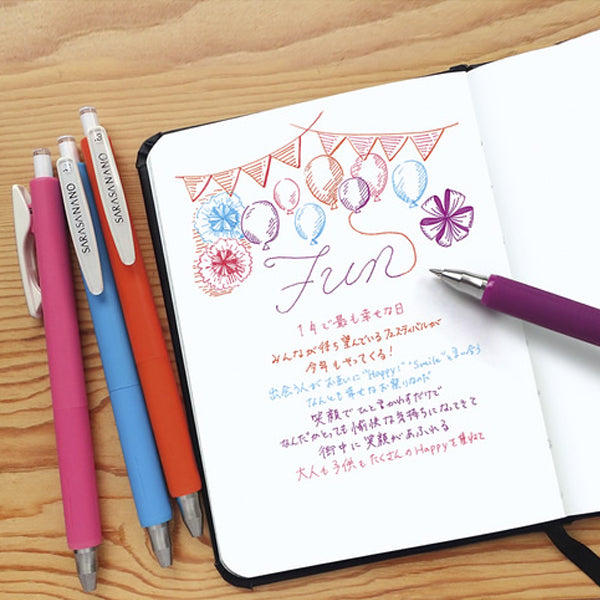 SARASANANO
SARASANANO
0.3
Fun
1年で最も幸せな日
みんなが待ち望んでいるフェスティバルが
今年もやってくる!
出会う人がお互いに"Happy!" "Smile"と言い合う
なんとも幸せなお祭りなのだ
笑顔でひと言かわすだけで
なんだかとっても愉快な気持ちになってきて
街中に笑顔があふれる
大人も子供もたくさんのHappyを集めて